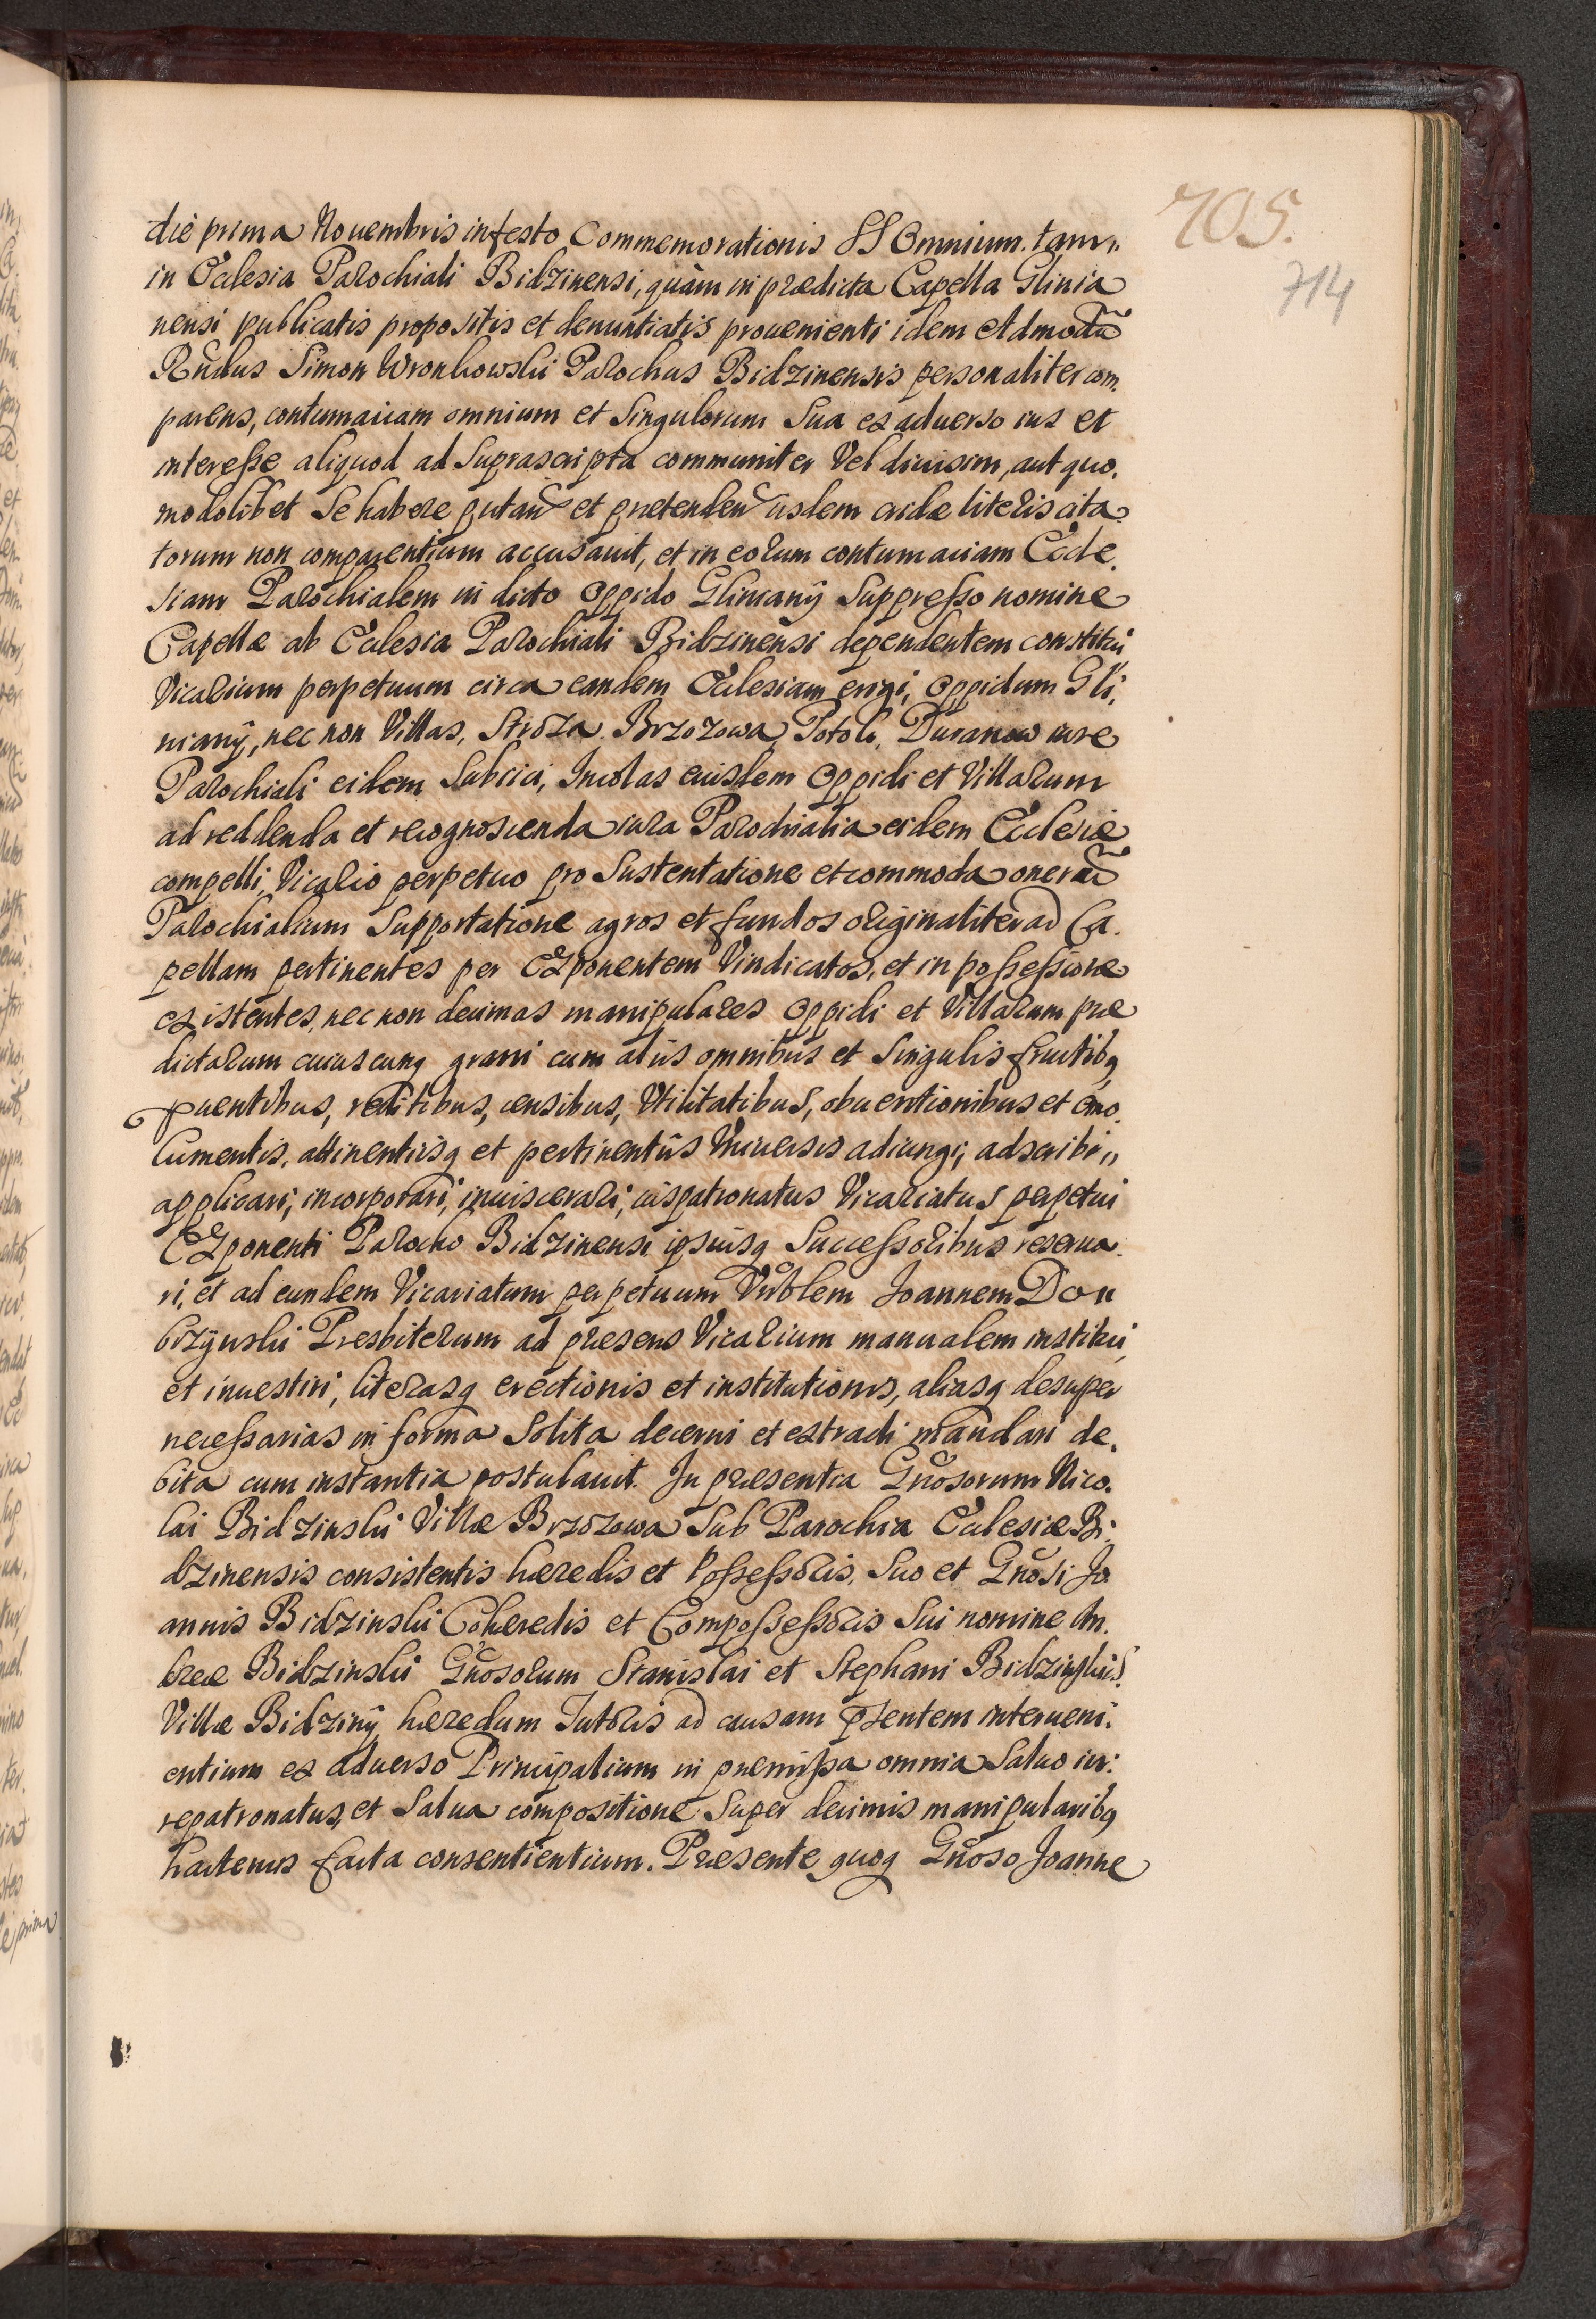 705.
714
die prima Nouembris in festo Commemorationis SS Omnium. tam„
in Ecclesia Parochiali Bidzinensi, quàm in prædicta Capella Glinia
nensi publicatis propositis et denuntiatis prouenienti idem Admodũ
Rñdus Simon Wronkowski Parochus Bidzinensis personaliter com.
parens, contumaciam omnium et Singulorum Sua ex aduerso ius et
interesse aliquod ad Suprascripta communiter Vel diuisim, aut quo.
modolibet Se habere putañ et prætendeñ iisdem cridæ literis cita
torum non comparentium accusauit, et in eorum contumaciam Eccle.
siam Parochialem in dicto Oppido Gliniany Suppresso nomine
Capellæ ab Ecclesia Parochiali Bidzinensi dependentem constitui
Vicarium perpetuum circa eandem Ecclesiam erigi, Oppidum Gli,
niany, nec non Villas, Stroza. Brzozowa, Potok, Duranow iure
Parochiali eidem Subiici, Incolas eiusdem Oppidi et Villarum
ad reddenda et recognoscenda iura Parochialia eidem Ecclesiæ
compelli, Vicario perpetuo pro Sustentatione et commoda onerũ
Parochialium Supportatione agros et fundos originaliter ad Ca.
pellam pertinentes per Exponentem Vindicatos, et in possessione
existentes, nec non decimas manipulares Oppidi et Villarum præ
dictarum cuiuscunq grani cum aliis omnibus et Singulis fructibq
puentibus, reditibus, censibus, Vtilitatibus, obuentionibus et emo
lumentis, attinentiisq et pertinentiis Vniuersis adiungi, adscribi„
applicari, incorporari, inuiscerari, iuspatronatus Vicariatus perpetui
Exponenti Parocho Bidzinensi ipsiusq Successoribus reserua.
ri, et ad eundem Vicariatum perpetuum Vñblem Joannem Don
brzynski Presbiterum ad præsens Vicarium manualem institui,
et inuestiri, literasq erectionis et institutionis, aliasq desuper
necessarias in forma Solita decerni et extradi mandari de.
bita cum instantia postulauit. In præsentia Gñosorum Nico.
lai Bidzinski Villæ Brzozowa Sub Parochia Ecclesiæ Bi,
dzinensis consistentis hæredis et Possessoris, Suo et Gñosi Jo
annis Bidzinski Cohæredis et Compossessoris Sui nomine An.
dreæ Bidzinski Gñosorum Stanislai et Stephani Bidzinskis
Villæ Bidziny hæredum Tutoris ad causam pñtentem interueni.
entium ex aduerso Principalium in præmissa omnia Saluo iur:
repatronatus, et Salua compositione Super decimis manipularibq
hactenus facta consentientium. Præsente quoq Gñoso Joanne